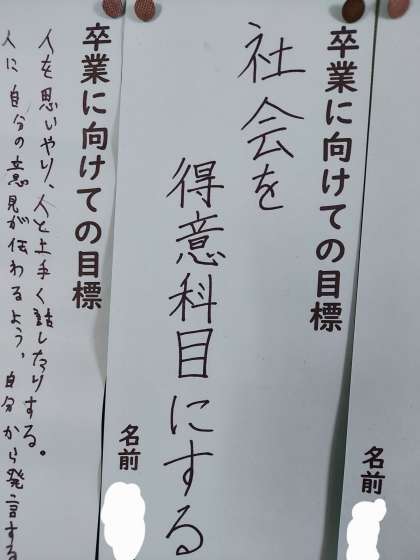 卒業に向けての目標
社会を
得意科目にする
名前
卒業に向けての目標
人を思いやり、人と上手く話したりする。
人に自分の意見が伝わるよう、自分から発言する
名前